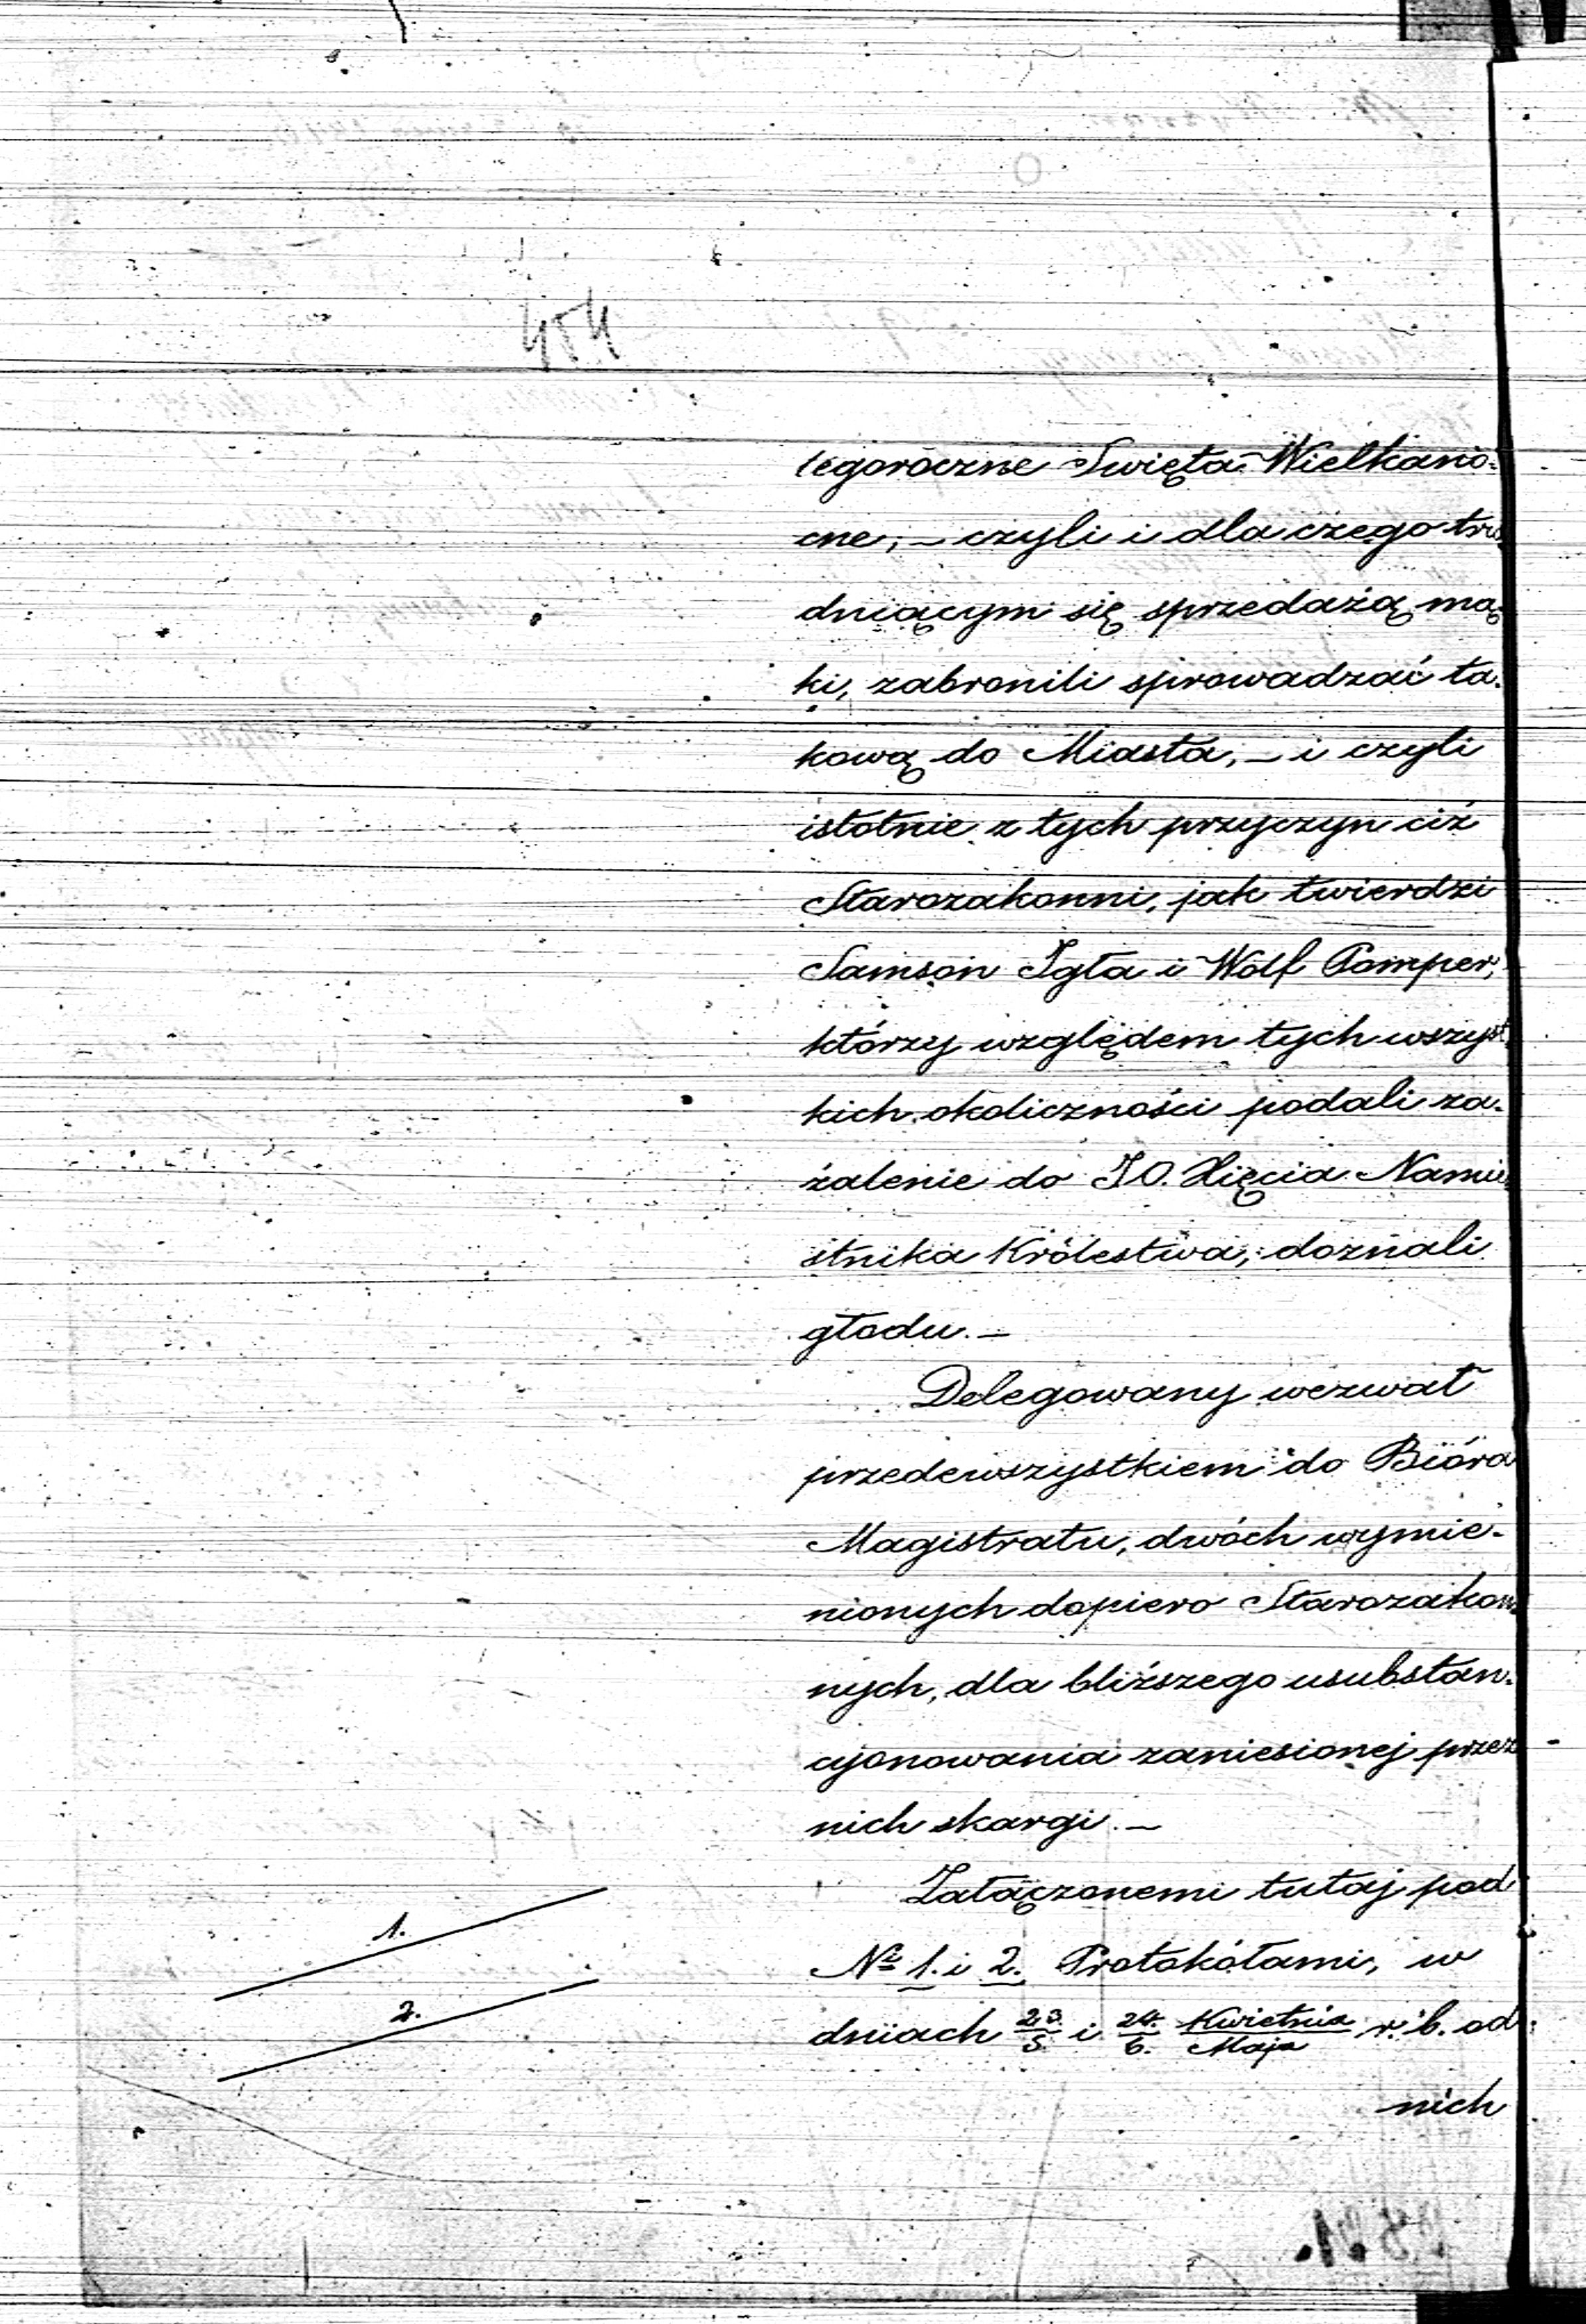 454
tegoroczne Swięta Wielkano-
cne, – czyli i dla czego tru-
dniącym się sprzedażą mą-
ki, zabronili sprowadzać ta-
kową do Miasta, – i czyli
istotnie z tych przyczyn ciż
Starozakonni, jak twierdzi
Samson Igła i Wolf Pomper,
którzy względem tych wszyst-
kich okoliczności podali za-
żalenie do J.O. Xięcia Namie-
stnika Królestwa, doznali
głodu. –
Delegowany wezwał
przedewszystkiem do Bióra
Magistratu, dwóch wymie-
nionych dopiero Starozakon-
nych, dla bliższego usubstan-
cyonowania zaniesionej przez
nich skargi. –
Załączonemi tutaj pod
1.
Nr 1. i 2. Protokółami, w
2.
dniach 23/5 i 24/6. Kwietnia/Maja r. b. od
nich